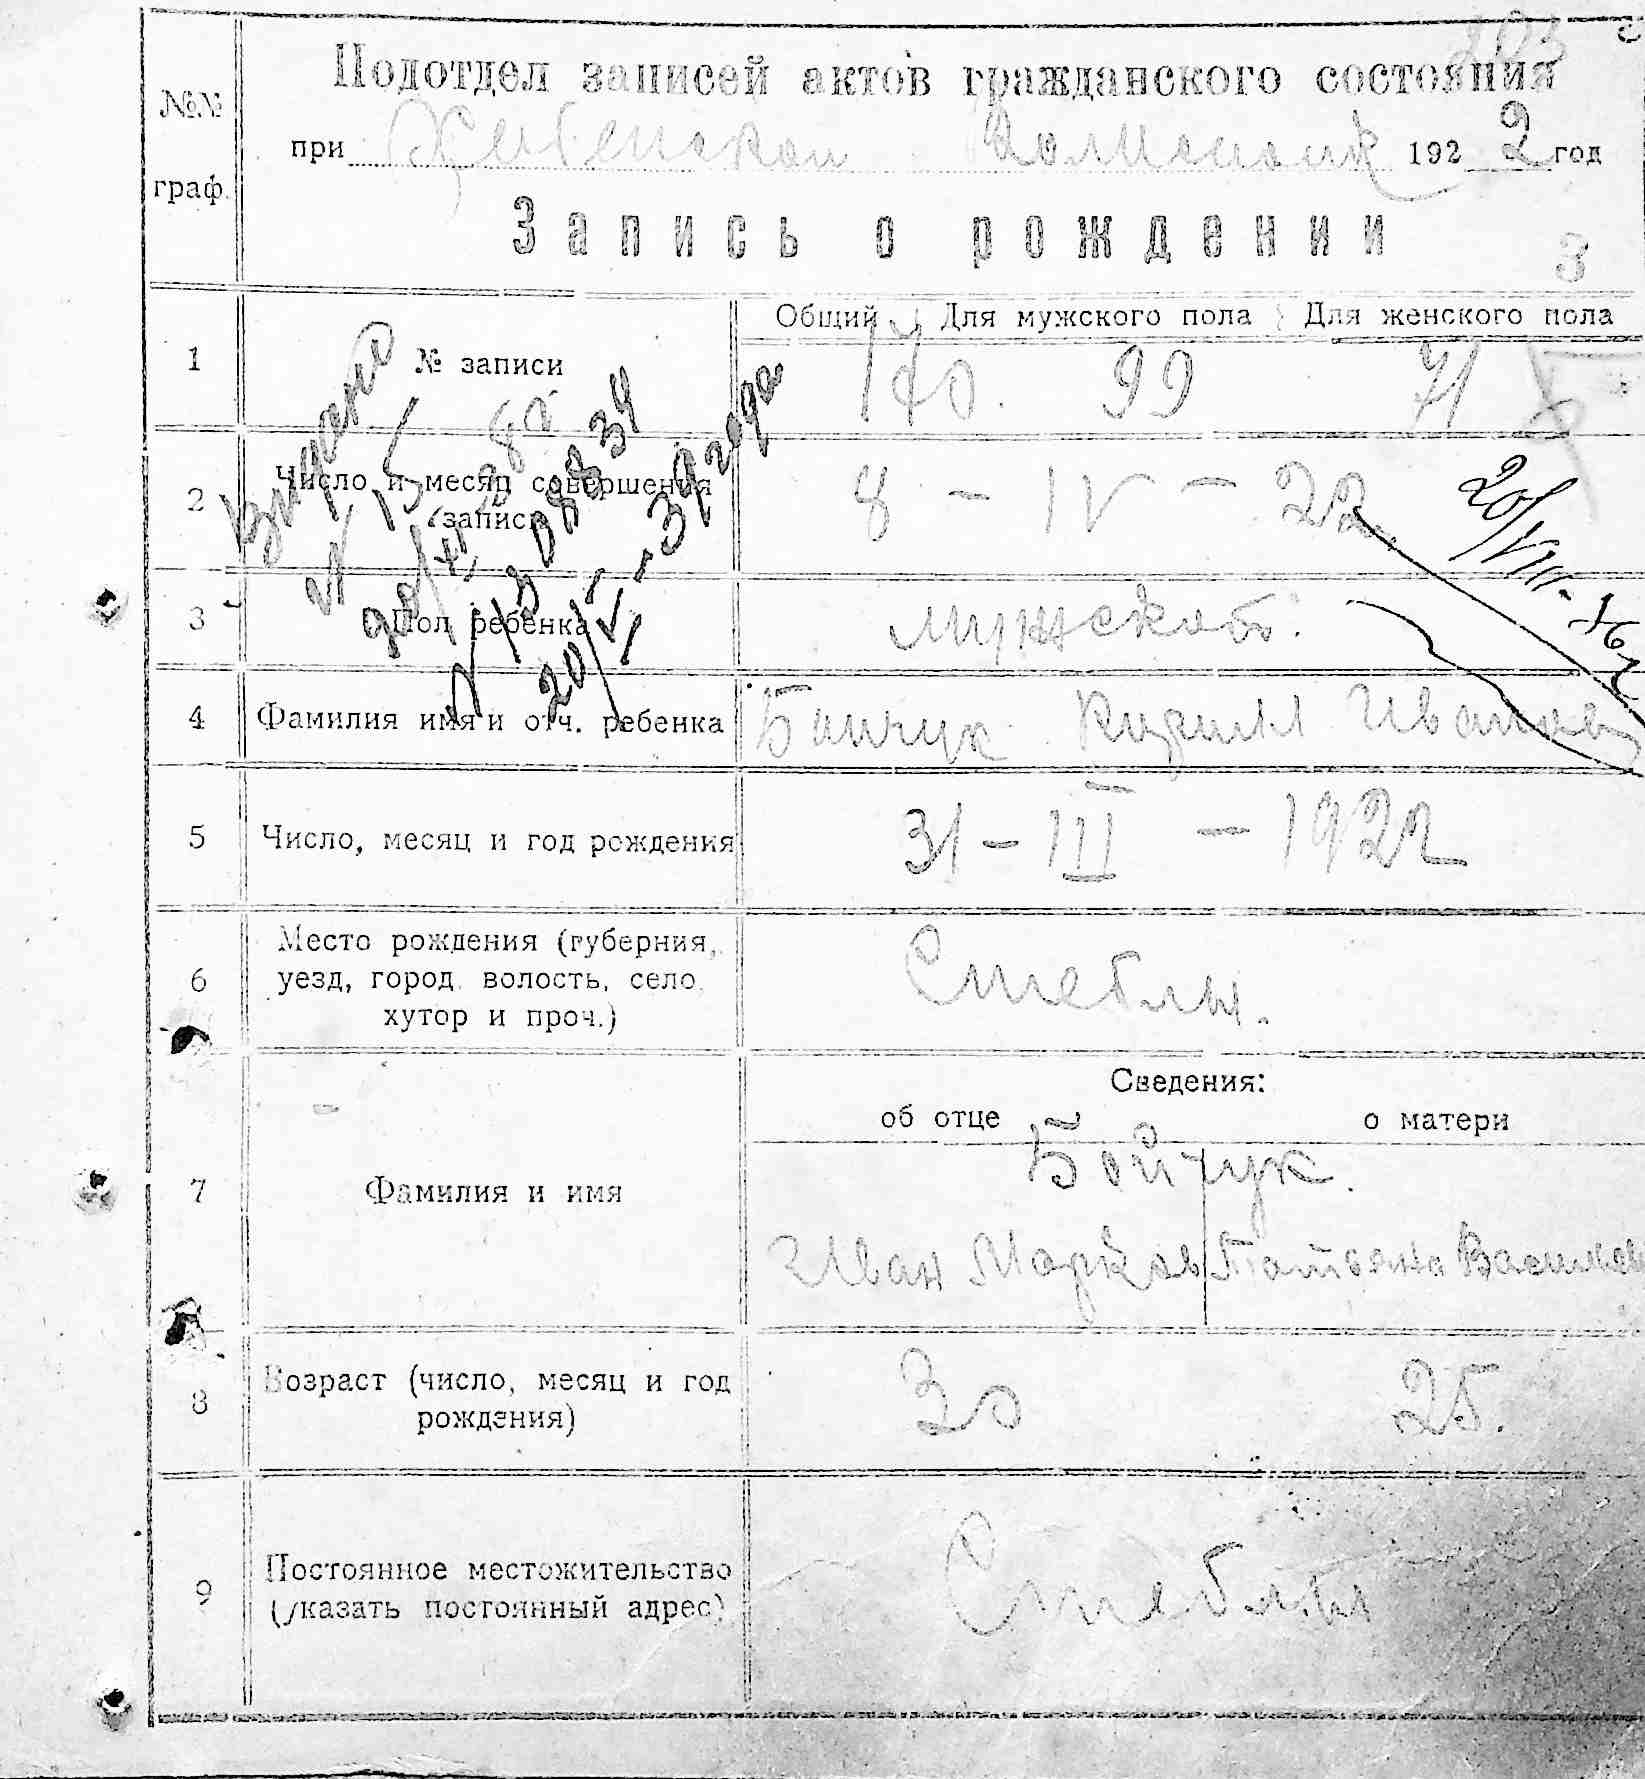 Подотдел записей актов гражданского состояния
при 1922 год
№№ граф.
Запись о рождении
3
Общий Для мужского пола Для женского пола
1 № записи 170. 99 71
Выдано
2 Число и месяц совершения записи 8 – IV – 22.
20/V – 39 года
20/VIII-
3 Пол ребенка мужской.
4 Фамилия имя и отч. ребенка Бойчук Кирилл Иванов
5 Число, месяц и год рождения 31 – III – 1922
6 Место рождения (губерния, уезд, город, волость, село, хутор и проч.) Стеблы.
Сведения:
об отце о матери
7 Фамилия и имя Бойчук.
Иван Марков Татьяна Васильев
8 Возраст (число, месяц и год рождения) 30 25.
9 Постоянное местожительство (указать постоянный адрес) Стеблы